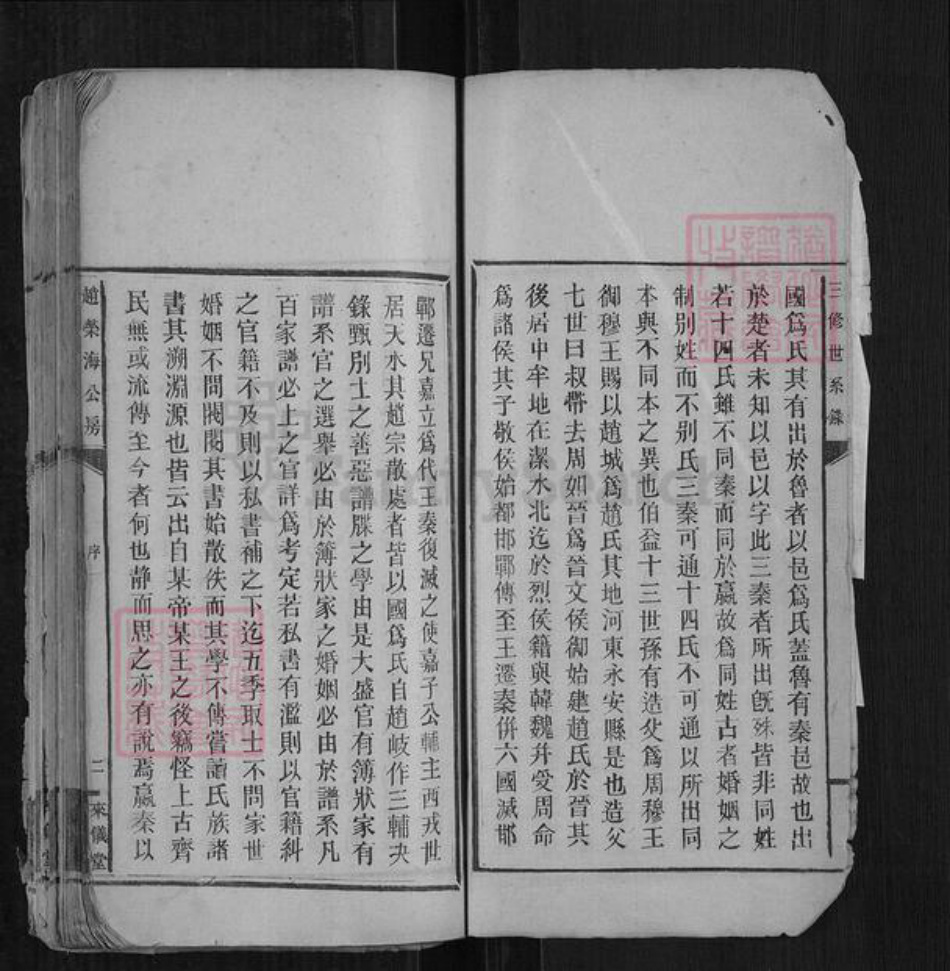 三修世系錄
國爲氏其有出於魯者以邑爲氏蓋魯有秦邑故也出
於楚者未知以邑以字此三秦者所出旣殊皆非同姓
若十四氏雖不同秦而同於嬴故爲同姓古者婚姻之
制别姓而不别氏三秦可通十四氏不可通以所出同
本與不同本之異也伯益十三世孫有造父爲周穆王
御穆王賜以趙城爲趙氏其地河東永安縣是也造父
七世曰叔帶去周如晉爲晉文侯御始建趙氏於晉其
後居中牟地在潔水北迄於烈侯籍與韓魏幷受周命
爲諸侯其子敬侯始都邯鄲傳至王遷秦併六國滅邯
鄲遷兄嘉立爲代王秦復滅之使嘉子公輔主西戎世
居天水其趙宗散處者皆以國爲氏自趙岐作三輔決
錄甄別士之善惡譜牒之學由是大盛官有簿狀家有
譜系官之選舉必由於簿狀家之婚姻必由於譜系凡
百家譜必上之官詳爲考定若私書有濫則以官籍糾
之官籍不及則以私書補之下迄五季取士不問家世
婚姻不問閥閱其書始散佚而其學不傳嘗讀氏族諸
書其溯淵源也皆云出自某帝某王之後竊怪上古齊
民無或流傳至今者何也静而思之亦有說焉嬴秦以
趙榮海公房
序
二
來儀堂